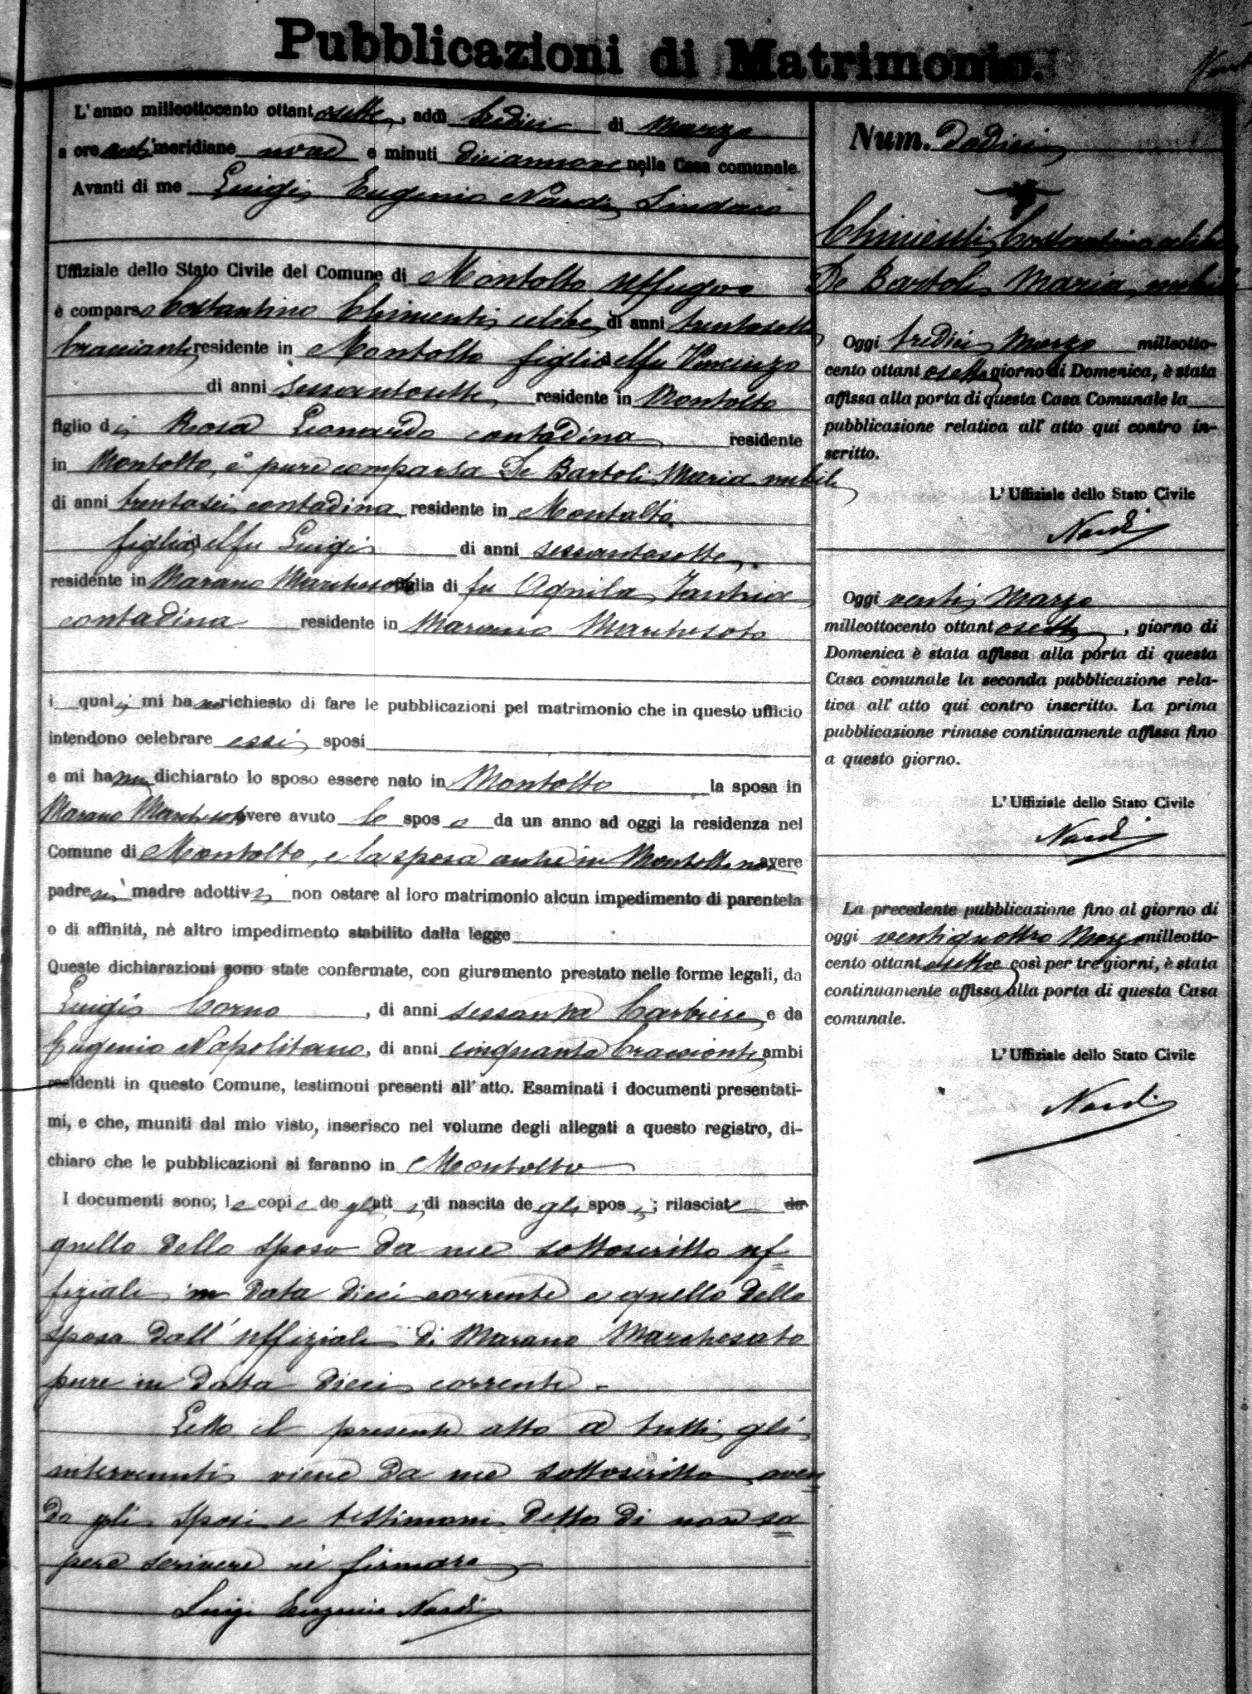 Pubblicazioni di Matrimonio.
L'anno milleottocento ottantasette, addì tredici di Marzo
a ore antimeridiane nove e minuti diciannove nella Casa comunale.
Avanti di me Luigi Eugenio Nardi Sindaco
Uffiziale dello Stato Civile del Comune di Montalto Uffugo
è comparso Costantino Chimenti, celibe, di anni trentasette
bracciante, residente in Montalto figlio del fu Vincenzo
di anni sessantasette, residente in Montalto
figlio di Rosa Leonardo contadina, residente
in Montalto, è pure comparsa De Bartoli Maria nubile
di anni trentasei, contadina, residente in Montalto
figlia del fu Luigi di anni sessantasette,
residente in Marano Marchesato figlia di fu Aquila
contadina residente in Marano Marchesato
i quali mi hanno richiesto di fare le pubblicazioni pel matrimonio che in questo ufficio
intendono celebrare essi sposi
e mi hanno dichiarato lo sposo essere nato in Montalto la sposa in
Marano Marchesato avere avuto lo sposo da un anno ad oggi la residenza nel
Comune di Montalto, e la sposa anche in Montalto non avere
padre nè madre adottivi non ostare al loro matrimonio alcun impedimento di parentela
o di affinità, nè altro impedimento stabilito dalla legge
Queste dichiarazioni sono state confermate, con giuramento prestato nelle forme legali, da
Luigi Corno, di anni sessanta barbiere e da
Eugenio Napolitano, di anni cinquanta bracciante ambi
residenti in questo Comune, testimoni presenti all'atto. Esaminati i documenti presentati-
mi, e che, muniti dal mio visto, inserisco nel volume degli allegati a questo registro, di-
chiaro che le pubblicazioni si faranno in Montalto
I documenti sono; le copie degli atti di nascita degli sposi; rilasciate da
quello dello sposo da me sottoscritto uf=
fiziale in data dieci corrente e quello della
sposa dall'uffiziale di Marano Marchesato
pure in data dieci corrente -
Letto il presente atto a tutti gli
intervenuti viene da me sottoscritto aven=
do gli sposi e testimoni detto di non sa=
pere scrivere nè firmare
Luigi Eugenio Nardi
Num. Dodici
Chimenti Costantino celibe
De Bartoli Maria nubile
Oggi tredici Marzo milleotto-
cento ottantasette giorno di Domenica, è stata
affissa alla porta di questa Casa Comunale la
pubblicazione relativa all'atto qui contro in-
scritto.
L'Uffiziale dello Stato Civile
Nardi
Oggi venti Marzo
milleottocento ottantasette, giorno di
Domenica è stata affissa alla porta di questa
Casa comunale la seconda pubblicazione rela-
tiva all'atto qui contro inscritto. La prima
pubblicazione rimase continuamente affissa fino
a questo giorno.
L'Uffiziale dello Stato Civile
Nardi
La precedente pubblicazione fino al giorno di
oggi ventiquattro Marzo milleotto-
cento ottantasette così per tre giorni, è stata
continuamente affissa alla porta di questa Casa
comunale.
L'Uffiziale dello Stato Civile
Nardi